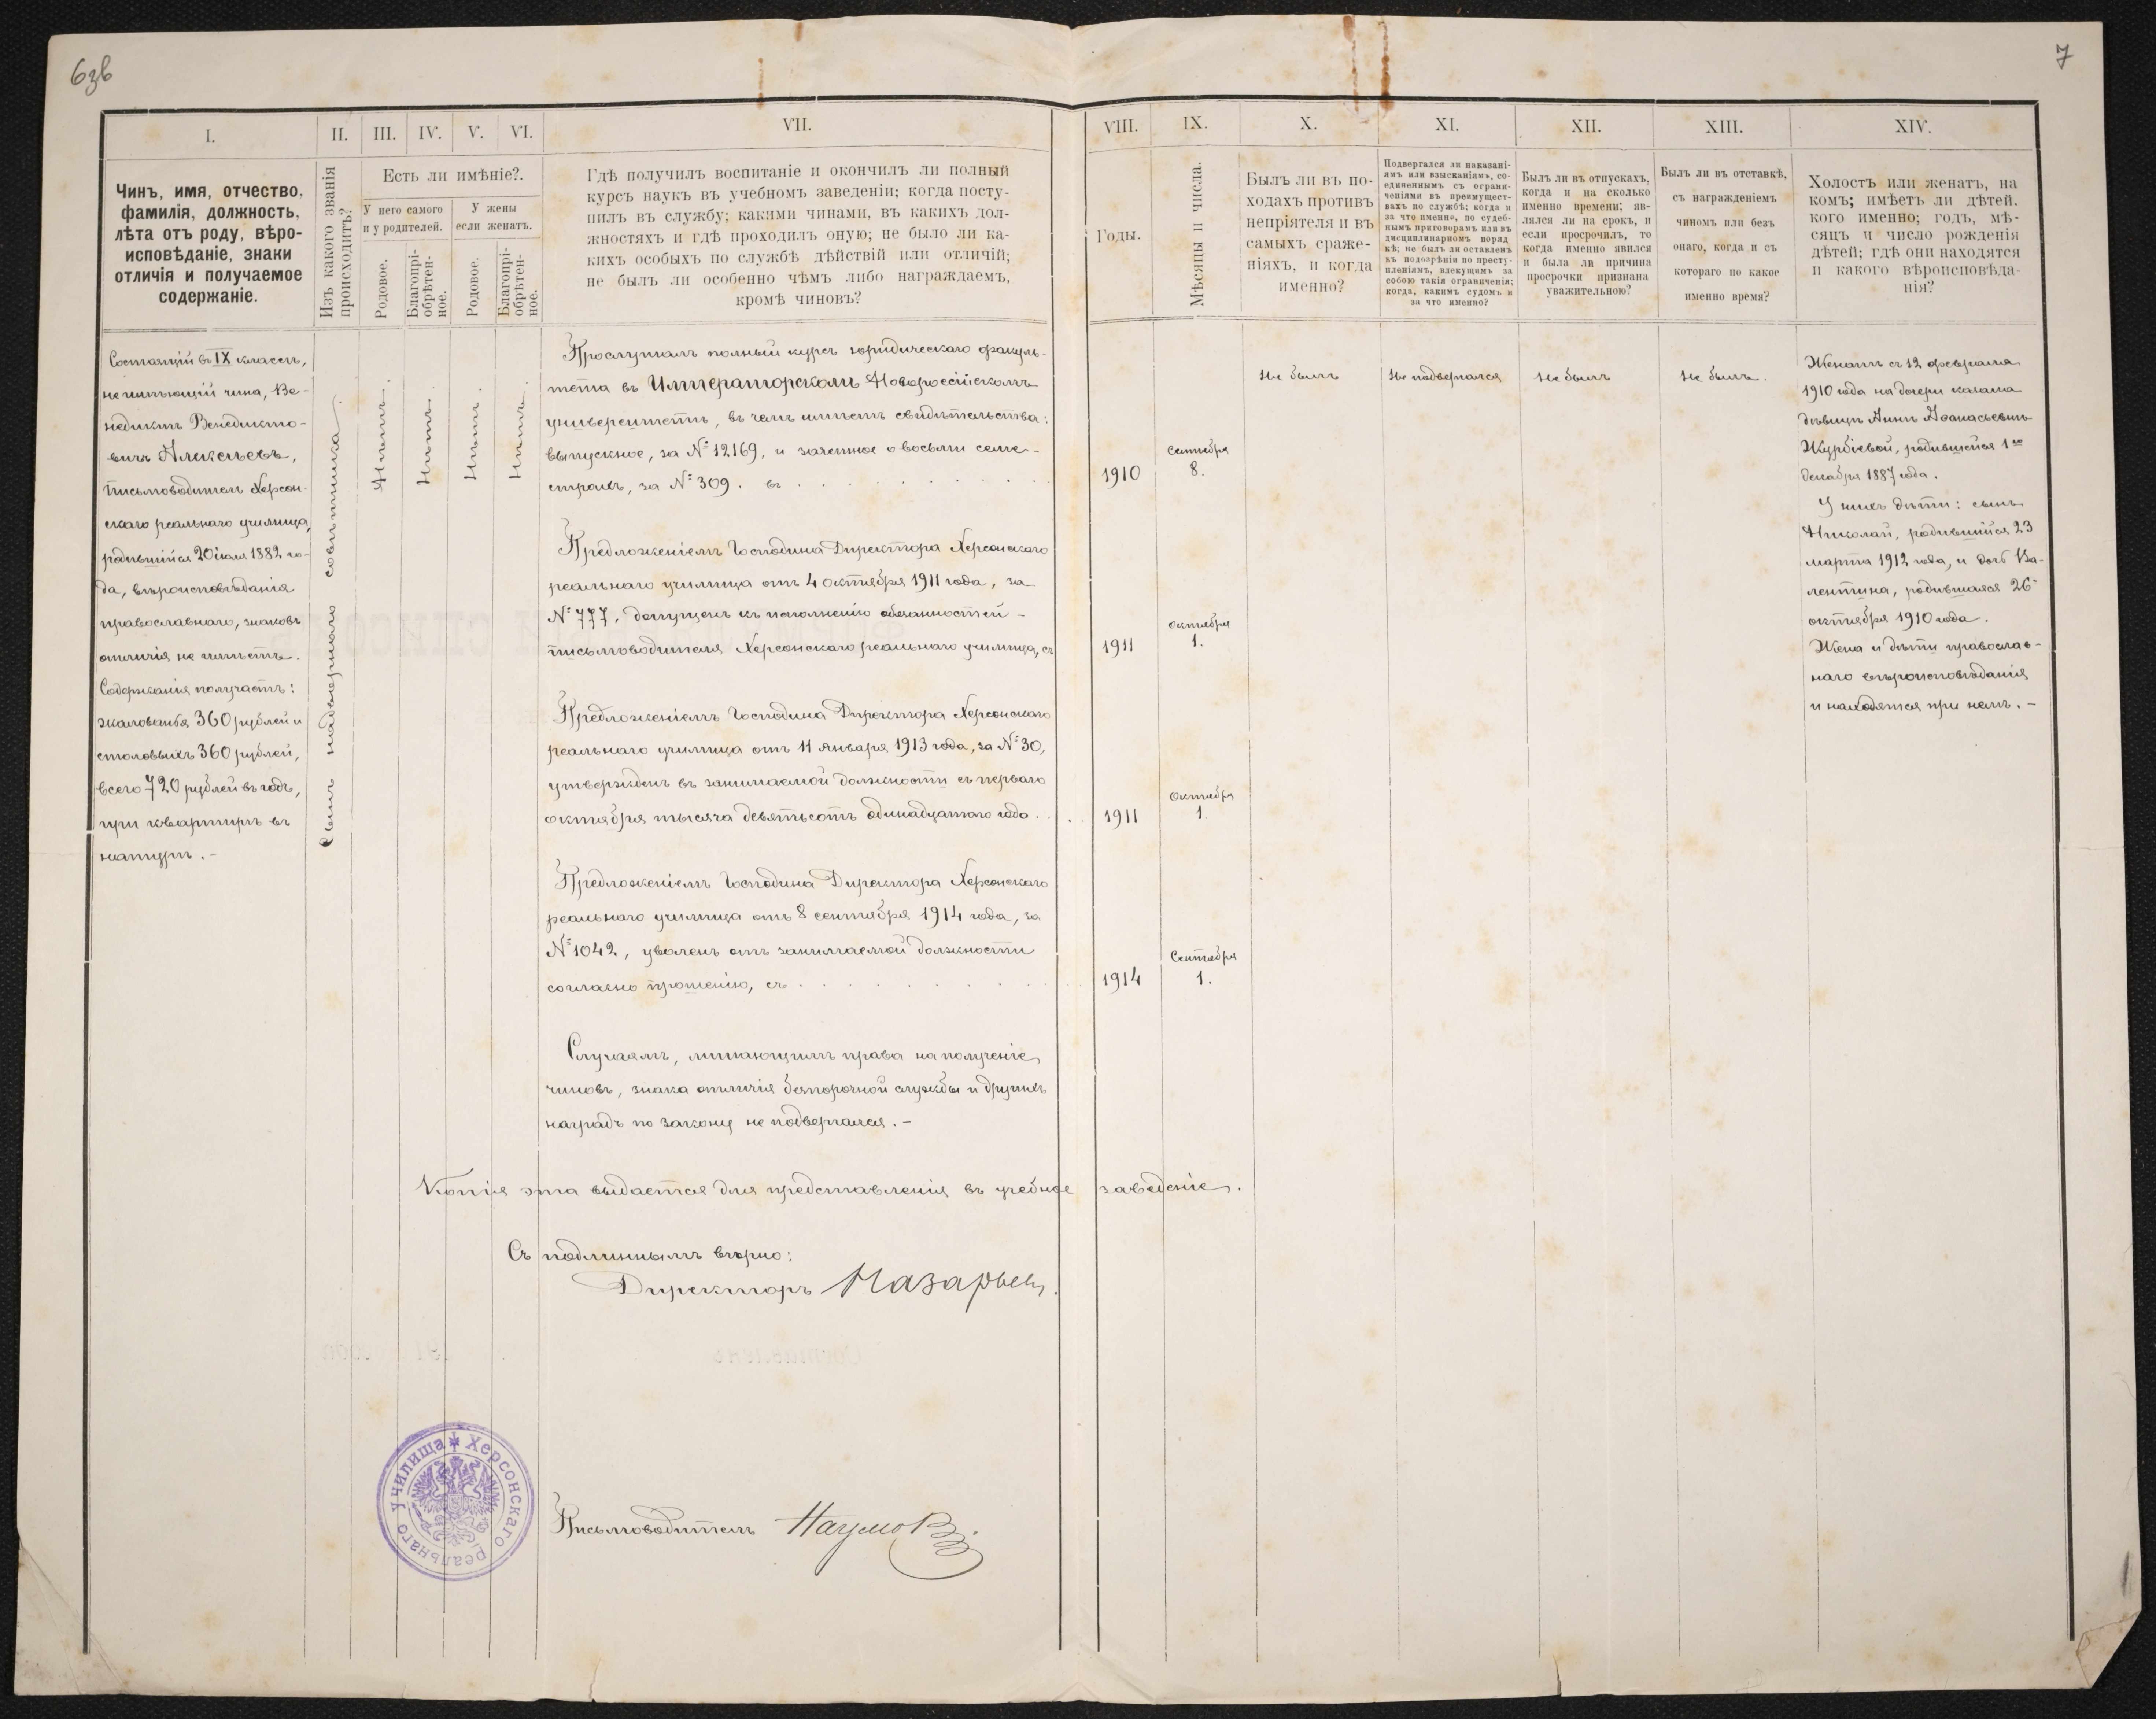 6зв
7
I.
II.
III.
IV.
V.
VI.
VII.
VIII.
IX.
X.
XI.
XII.
XIII.
XIV.
Чинъ, имя, отчество,
фамилія, должность,
лѣта отъ роду, вѣро-
исповѣданіе, знаки
отличія и получаемое
содержаніе.
Изъ какого званія
происходитъ?
Есть ли имѣніе?.
У него самого
и у родителей.
У жены
если женатъ.
Родовое.
Благопрі-
обрѣтен-
ное.
Родовое.
Благопрі-
обрѣтен-
ное.
Гдѣ получилъ воспитаніе и окончилъ ли полный
курсъ наукъ въ учебномъ заведеніи; когда посту-
пилъ въ службу; какими чинами, въ какихъ дол-
жностяхъ и гдѣ проходилъ оную; не было ли ка-
кихъ особыхъ по службѣ дѣйствій или отличій;
не былъ ли особенно чѣмъ либо награждаемъ,
кромѣ чиновъ?
Годы.
Мѣсяцы и числа.
Былъ ли въ по-
ходахъ противъ
непріятеля и въ
самыхъ сраже-
ніяхъ, и когда
именно?
Подвергался ли наказані-
ямъ или взысканіямъ, со-
единеннымъ съ ограни-
ченіями въ преимущест-
вахъ по службѣ; когда и
за что именно, по судеб-
нымъ приговорамъ или въ
дисциплинарномъ поряд
кѣ; не былъ ли оставленъ
въ подозрѣніи по престу-
пленіямъ, влекущимъ за
собою такія ограниченія;
когда, какимъ судомъ и
за что именно?
Былъ ли въ отпускахъ,
когда и на сколько
именно времени; яв-
лялся ли на срокъ, и
если просрочилъ, то
когда именно явился
и была ли причина
просрочки признана
уважительною?
Былъ ли въ отставкѣ,
съ награжденіемъ
чиномъ или безъ
онаго, когда и съ
котораго по какое
именно время?
Холостъ или женатъ, на
комъ; имѣетъ ли дѣтей.
кого именно; годъ, мѣ-
сяцъ и число рожденія
дѣтей; гдѣ они находятся
и какого вѣроисповѣда-
нія?
Состоящій въ IX классѣ,
неимѣющій чина, Ве-
недиктъ Венедикто-
вичъ Алексѣевъ,
письмоводитель Херсон-
скаго реальнаго училища,
родившійся 20 іюля 1882 го-
да, вѣроисповѣданія
православнаго, знаковъ
отличія не имѣетъ.
Содержанія получаетъ:
жалованья 360 рублей и
столовыхъ 360 рублей,
всего 720 рублей въ годъ,
при квартирѣ въ
натурѣ. –
Сынъ надворнаго совѣтника.
Нѣтъ.
Нѣтъ.
Нѣтъ.
Нѣтъ.
Прослушалъ полный курсъ юридическаго факуль-
тета въ Императорскомъ Новороссійскомъ
университетѣ, въ чемъ имѣетъ свидѣтельства:
выпускное, за № 12169, и зачетное о восьми семе-
страхъ, за № 309. въ . . . . . . . . .
1910
Сентября
8.
Предложеніемъ Господина Директора Херсонскаго
реальнаго училища отъ 4 октября 1911 года, за
№ 777, допущенъ къ исполненію обязанностей –
письмоводителя Херсонскаго реальнаго училища, съ
1911
Октября
1.
Предложеніемъ Господина Директора Херсонскаго
реальнаго училища отъ 11 января 1913 года, за № 30,
утвержденъ въ занимаемой должности съ перваго
октября тысяча девятьсотъ одинадцатаго года . .
1911
Октября
1.
Предложеніемъ Господина Директора Херсонскаго
реальнаго училища отъ 8 сентября 1914 года, за
№ 1042, уволенъ отъ занимаемой должности
согласно прошенію, съ . . . . . . . . .
1914
Сентября
1.
Случаямъ, лишающимъ права на полученіе
чиновъ, знака отличія безпорочной службы и другихъ
наградъ по закону не подвергался. –
Не былъ
Не подвергался
Не былъ
Не былъ.
Женатъ съ 12 февраля
1910 года на дочери казака
дѣвицѣ Аннѣ Аѳанасьевнѣ
Журбіевой, родившейся 1го
декабря 1887 года.
У нихъ дѣти: сынъ
Николай, родившійся 23
марта 1912 года, и дочь Ва-
лентина, родившаяся 26
октября 1910 года.
Жена и дѣти православ-
наго вѣроисповѣданія
и находятся при немъ. –
Копія эта выдается для представленія въ учебное заведеніе.
Съ подлиннымъ вѣрно:
Директоръ Назарьевъ.
Херсонскаго реальнаго училища
Письмоводитель Наумовъ